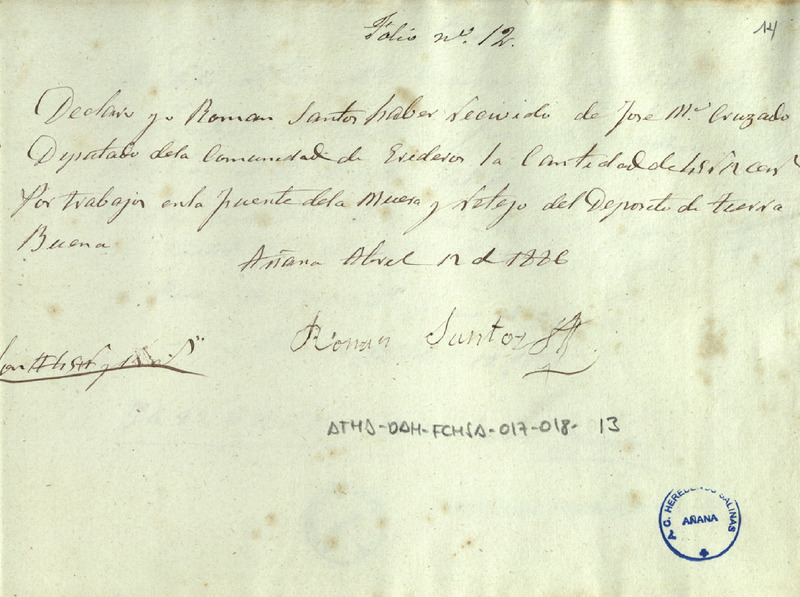 Folio nº. 12.
14
Declaro yo Roman Santos haber recivido de Jose Mª Cruzado
Diputado dela Comunidad de Erederos la Cantidad de
Por trabajos enla puente dela Muera y retejo del Deposito de tierra
Buena
Añana Abril 12 d 1886
Roman Santos
Son
ATHA-DAH-FCHSA-017-018- 13
C. HEREDEROS SALINAS
AÑANA